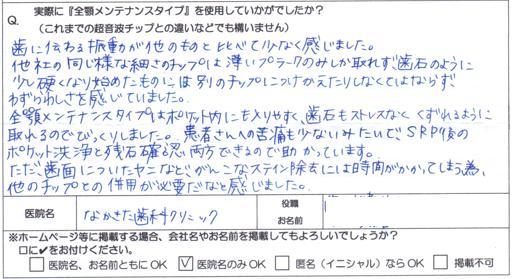 Q. 実際に『全顎メンテナンスタイプ』を使用していかがでしたか？
（これまでの超音波チップとの違いなどでも構いません）
歯に伝わる振動が他のものと比べて少なく感じました。
他社の同じ様な細さのチップは薄いプラークのみしか取れず、歯石のように
少し硬くなり始めたものには別のチップにつけかえたりしなくてはならず、
わずらわしさを感じていました。
全顎メンテナンスタイプはポケット内にも入りやすく、歯石もストレスなくくずれるように
取れるのでびっくりしました。患者さんへの苦痛も少ないみたいで、SRP後の
ポケット洗浄と残石確認、両方できるので助かっています。
ただ、歯面についたヤニなどがんこなステイン除去には時間がかかってしまう為、
他のチップとの併用が必要だなと感じました。
医院名 なかきた歯科クリニック 役職
お名前
※ホームページ等に掲載する場合、会社名やお名前を掲載してもよろしいでしょうか？
□に✔をお付けください。
□ 医院名、お名前ともにOK ☑ 医院名のみOK □ 匿名（イニシャル）ならOK □ 掲載不可